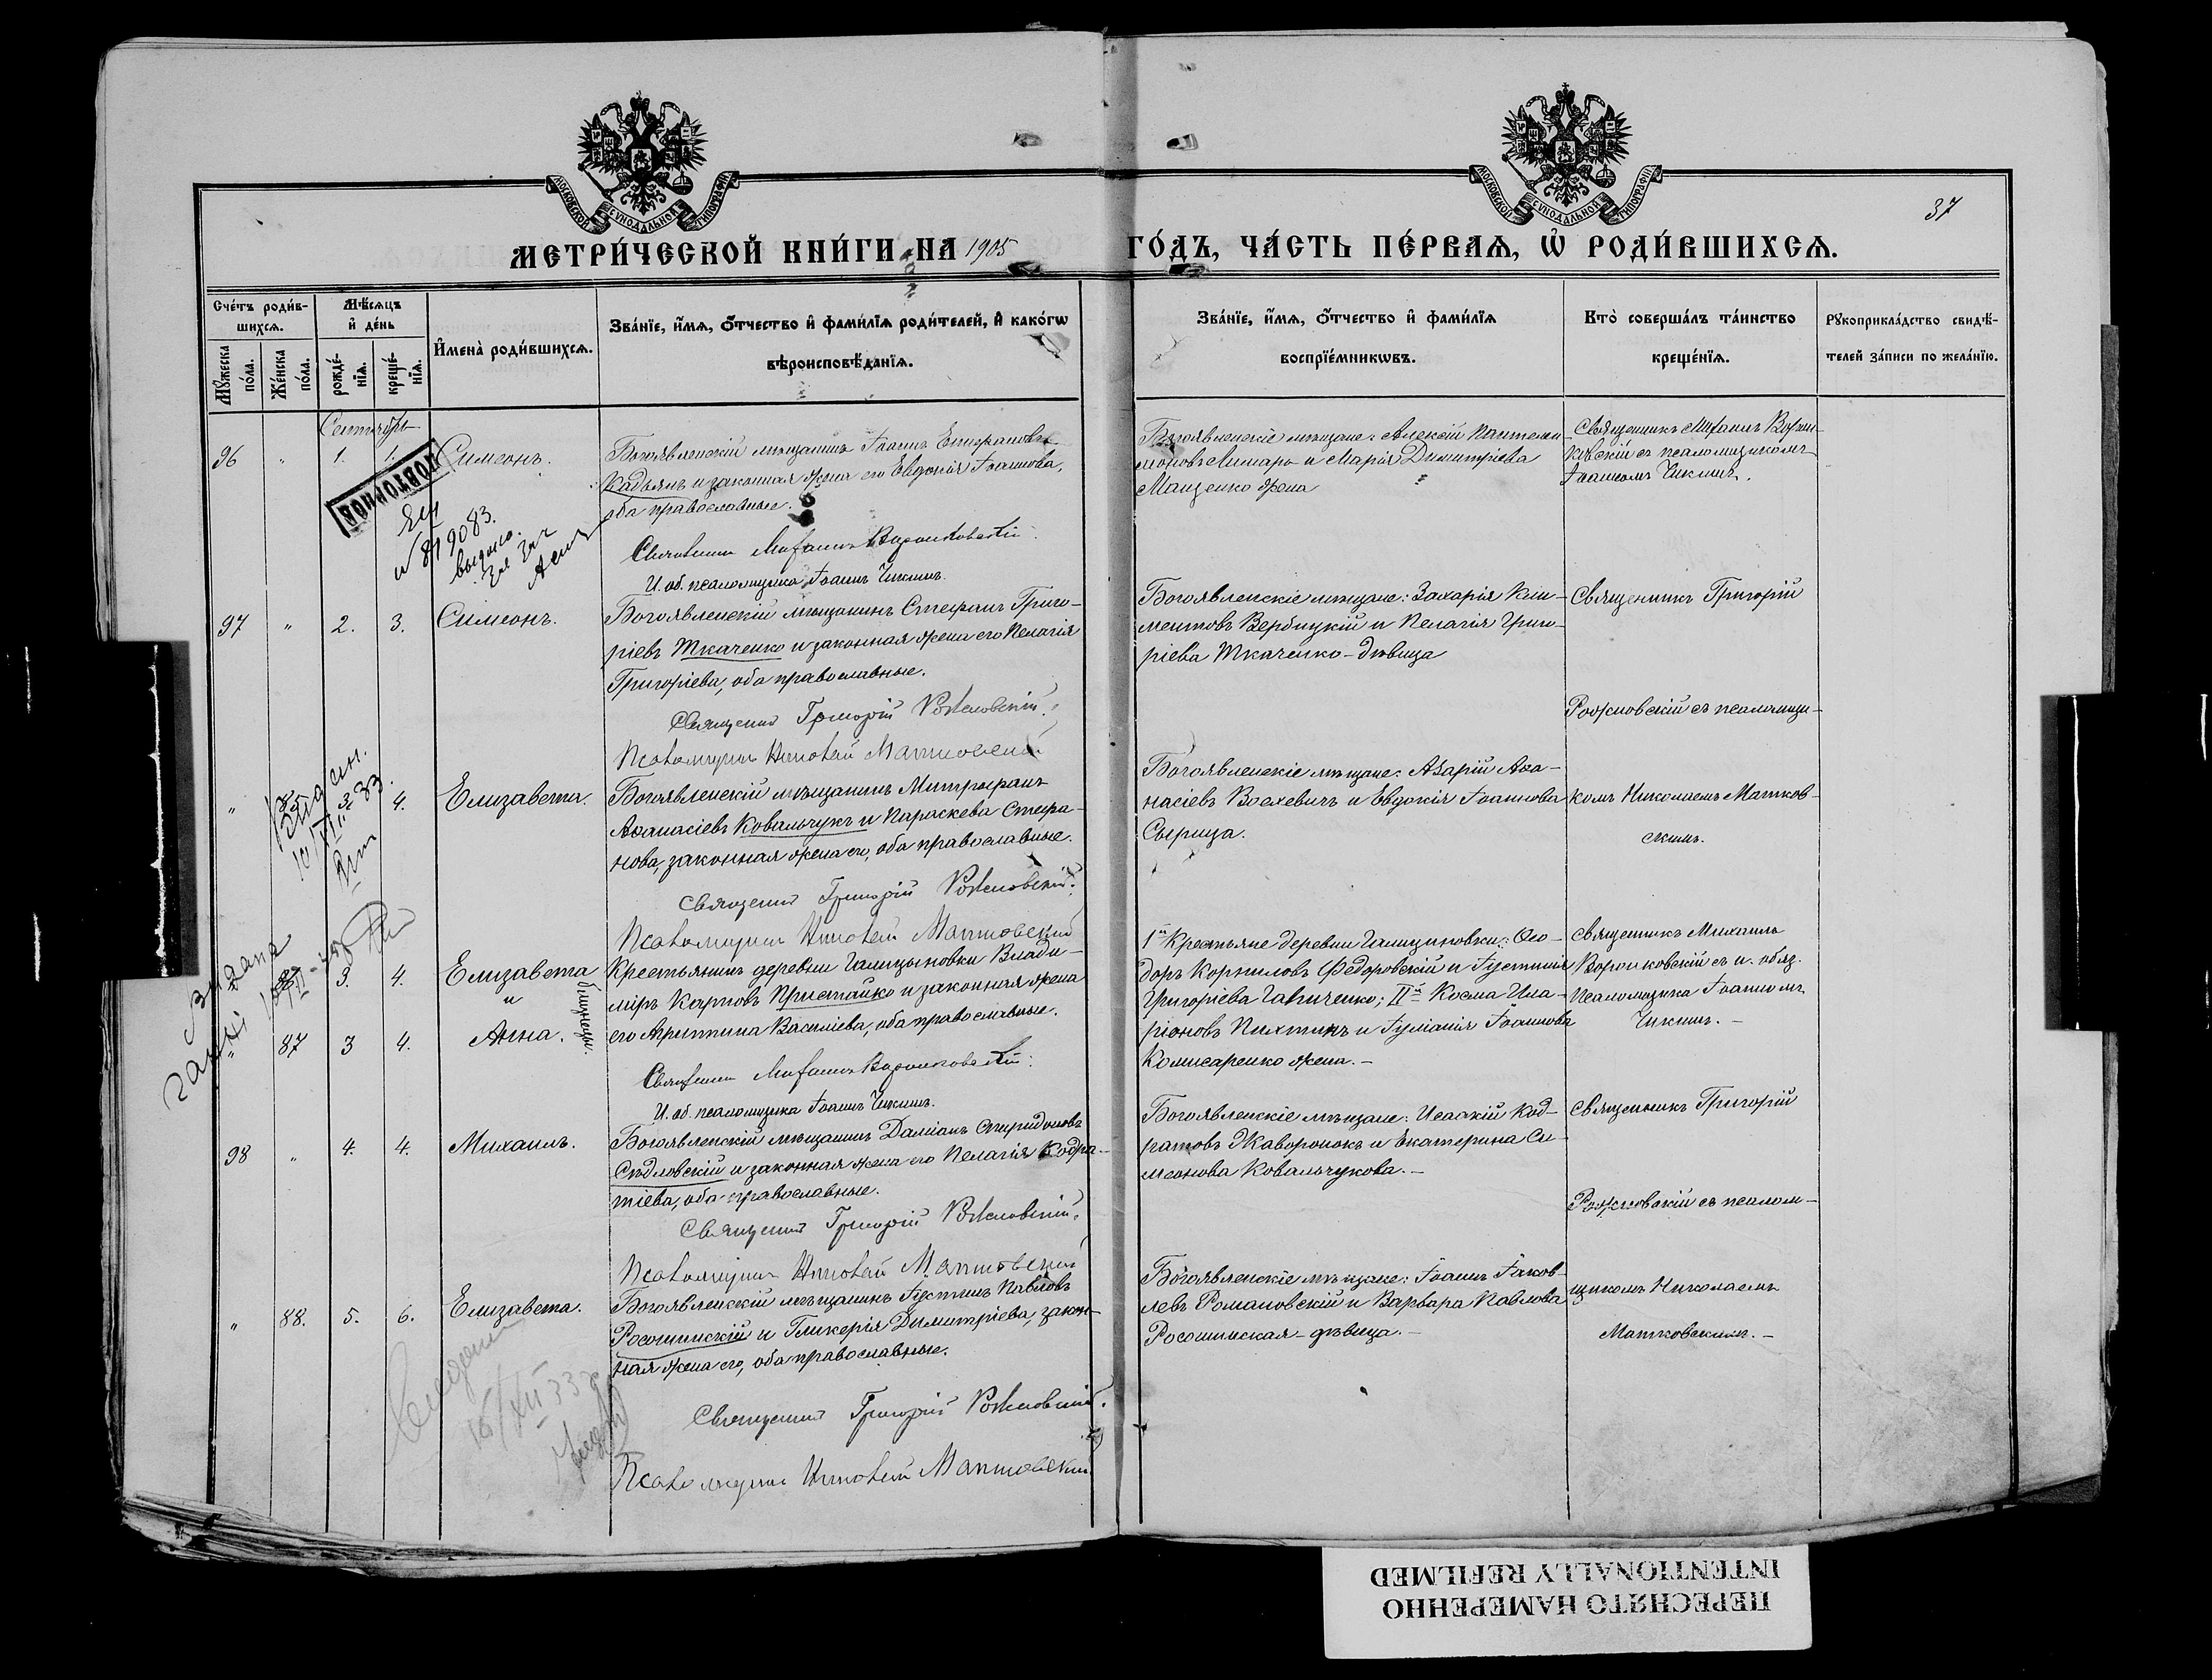 МОСКОВСКОЙ СѴНОДАЛЬНОЙ ТИПОГРАФІИ
МОСКОВСКОЙ СѴНОДАЛЬНОЙ ТИПОГРАФІИ
37
МЕТРИ́ЧЕСКОЙ КНИ́ГИ НА 1905
ГО́ДЪ, ЧА́СТЬ ПЕ́РВАѦ, Ѡ҆ РОДИ́ВШИХСѦ.
Сче́тъ роди́в-
шихсѧ.
Мѣ́сѧцъ
и҆ де́нь
Мꙋ́жеска
по́ла.
Же́нска
по́ла.
рожде́-
нїѧ.
креще́-
нїѧ.
И҆мена̀ роди́вшихсѧ.
Зва́нїе, и҆́мѧ, ѻ҆́тчество и҆ фами́лїѧ роди́телей, и҆ како́гѡ
вѣроисповѣ́данїѧ.
Зва́нїе, и҆́мѧ, ѻ҆́тчество и҆ фами́лїѧ
воспрїе́мникѡвъ.
Кто̀ соверша́лъ та́инство
креще́нїѧ.
Рꙋкоприкла́дство свидѣ́-
телей за́писи по жела́нїю.
Сентябрь
96 " 1. 1. Симеонъ.
Богоявленскій мѣщанинъ Іоаннъ Епифановъ
Кадьянъ и законная жена его Евдокія Іоаннова,
оба православные.
Священникъ Михаилъ Воронковскій.
И. об. псаломщика Іоаннъ Чикминъ.
Богоявленскіе мѣщане: Алексій Пантелеи-
моновъ Лимарь и Марія Димитріева
Маценко жена
Священникъ Михаилъ Ворон-
ковскій съ псаломщикомъ
Іоанномъ Чикминъ.
ПОВТОРНОЯ
№ 819083.
выдано.
97 " 2. 3. Симеонъ.
Богоявленскій мѣщанинъ Стефанъ Григо-
ріевъ Ткаченко и законная жена его Пелагія
Григоріева, оба православные.
Священникъ Григорій Рожновскій.
Псаломщикъ Николай Матковскій
Богоявленскіе мѣщане: Захарія Кли-
ментовъ Вербицкій и Пелагія Григо-
ріева Ткаченко - дѣвица
Священникъ Григорій
Рожновскій съ псаломщи-
" 85 3 4. Елизавета.
Богоявленскій мѣщанинъ Митрофанъ
Аѳанасіевъ Ковальчукъ и Параскева Стефа-
нова, законная жена его, оба православные.
Священникъ Григорій Рожновскій.
Псаломщикъ Николай Матковскій
Богоявленскіе мѣщане: Азарій Аѳа-
насіевъ Воехевичъ и Евдокія Іоаннова
Сырица.
комъ Николаемъ Матков-
скимъ.
" 86 3. 4. Елизавета
и
" 87 3 4. Анна.
близнецы.
Крестьянинъ деревни Галицыновки Влади-
міръ Карповъ Пристайко и законная жена
его Агрипина Василіева, оба православные.
Священникъ Михаилъ Воронковскій.
И. об. псаломщика Іоаннъ Чикминъ.
1й Крестьяне деревни Галициновки: Ѳео-
доръ Корниловъ Федоровскій и Іустинія
Григоріева Ганиченко; IIй Косма Ила-
ріоновъ Пихтинъ и Іуліанія Іоаннова
Комисаренко жена. -
Священникъ Михаилъ
Воронковскій съ и. обяз.
псаломщика Іоанномъ
Чикминъ. -
98 " 4. 4. Михаилъ.
Богоявленскій мѣщанинъ Даміанъ Спиридоновъ
Сѣдловскій и законная жена его Пелагія Кодра-
тіева, оба православные.
Священникъ Григорій Рожновскій.
Псаломщикъ Николай Матковскій
Богоявленскіе мѣщане: Исаакій Код-
ратовъ Жаворонокъ и Екатерина Си-
меонова Ковальчукова. -
Священникъ Григорій
Рожновскій съ псалом-
" 88. 5. 6. Елизавета.
Богоявленскій мѣщанинъ Іустинъ Павловъ
Росошинскій и Гликерія Димитріева, закон-
ная жена его, оба православные.
Священникъ Григорій Рожновскій.
Псаломщикъ Николай Матковскій
Богоявленскіе мѣщане: Іоаннъ Іаков-
левъ Романовскій и Варвара Павлова
Росошинская - дѣвица. -
щикомъ Николаемъ
Матковскимъ. -
16/XII 33
ПЕРЕСНЯТО НАМЕРЕННО
INTENTIONALLY REFILMED